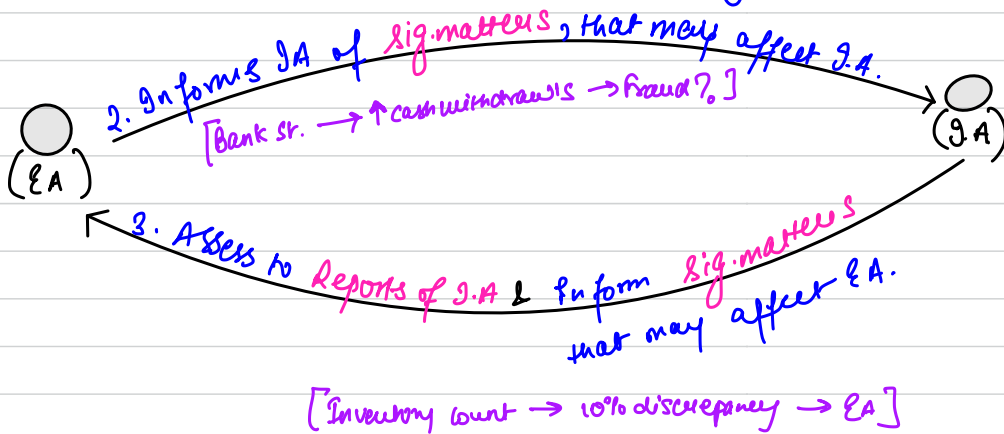 2. Informs IA of sig.matters, that may affect I.A.
[Bank St. → ↑ cash withdraw's → Fraud?]
(EA)
(I.A)
3. Assess to Reports of I.A & Inform sig.matters
that may affect EA.
[Inventory count → 10% discrepancy → EA]